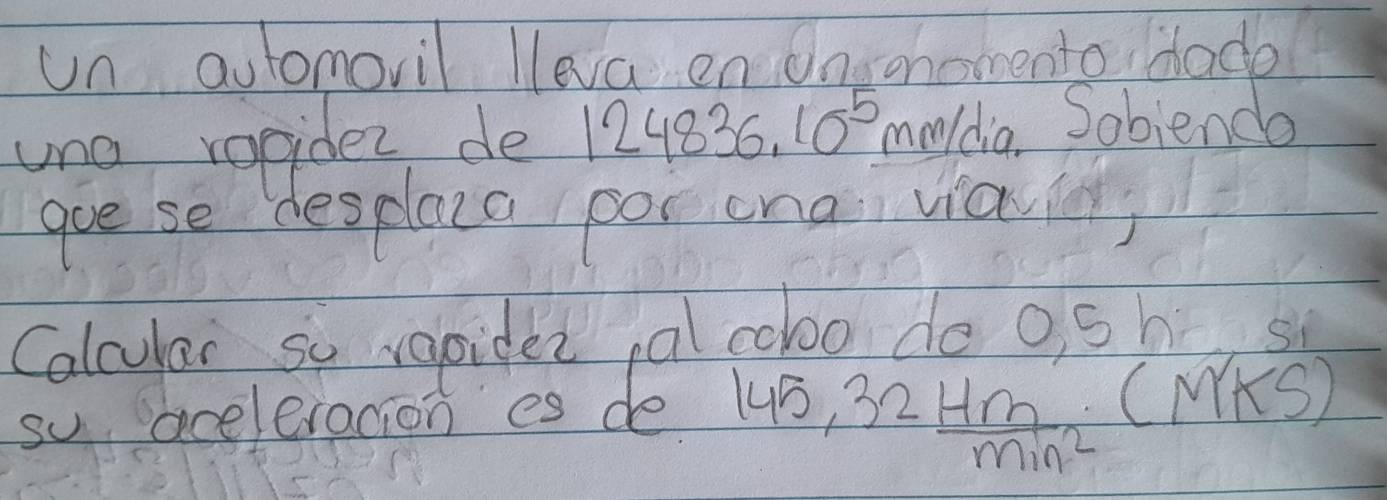 Un automovil lleva en un momento dado
una rapidez de 124836.10⁵ mm/dia. Sabiendo
que se desplaza por una via,
Calcular su rapidez al cabo de 0,5 h si
su aceleración es de 145,32 Hm/min². (MKS)